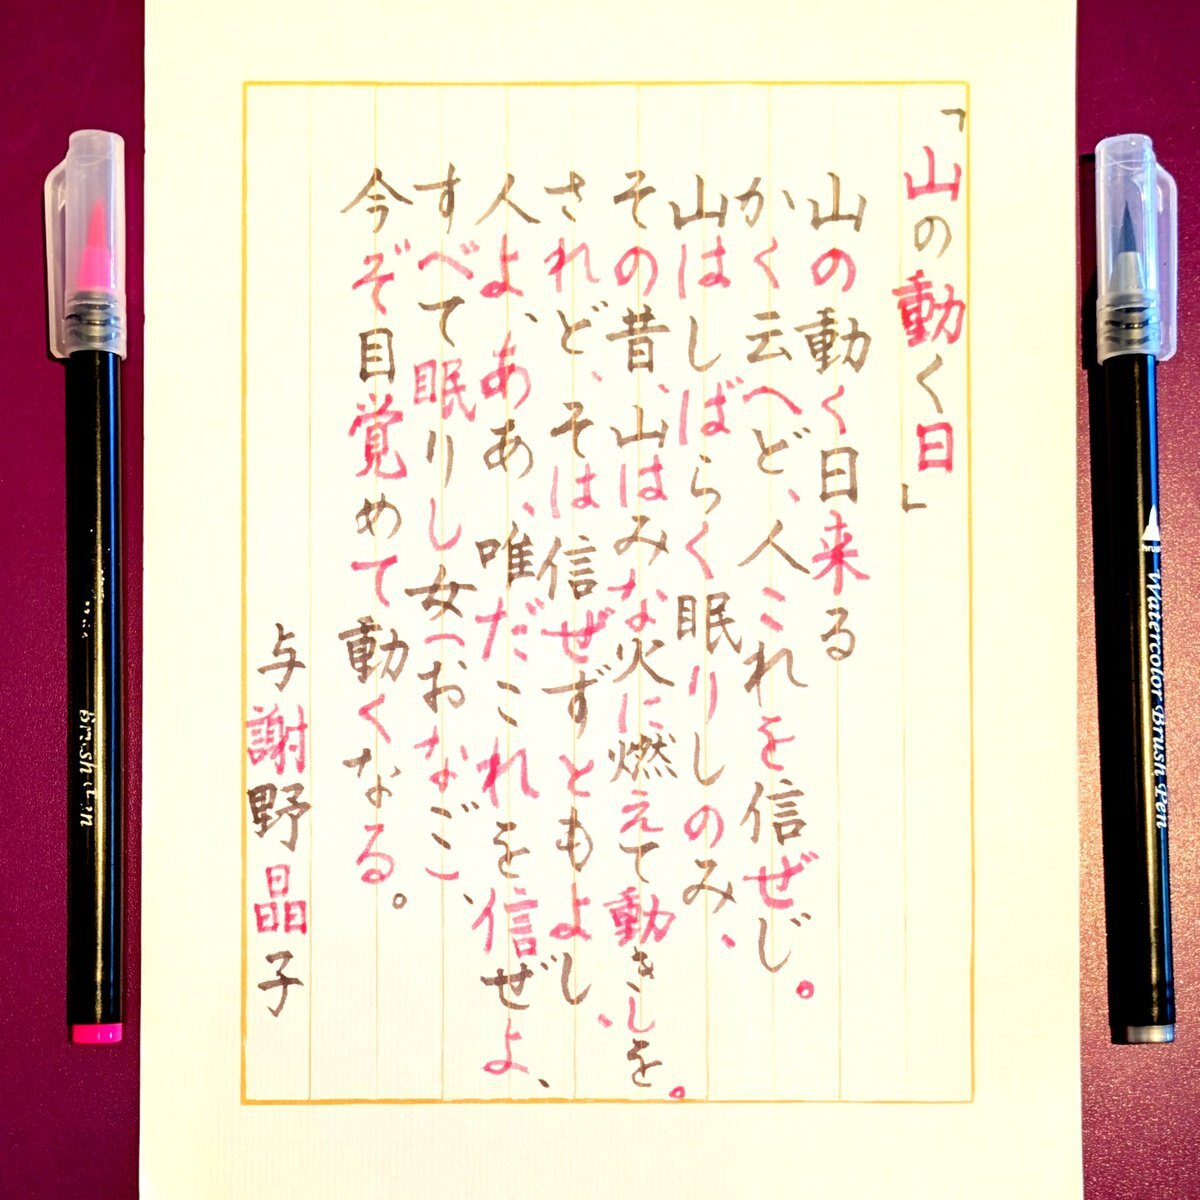 「山の動く日」
山の動く日来る
かく云へど、人これを信ぜじ。
山はしばらく眠りしのみ、
その昔、山はみな火に燃えて動きしを。
されど、そは信ぜずともよし、
人よ、ああ、唯だこれを信ぜよ、
すべて眠りし女(おなご)、
今ぞ目覚めて動くなる。
与謝野晶子
Brush Pen
Watercolor Brush Pen